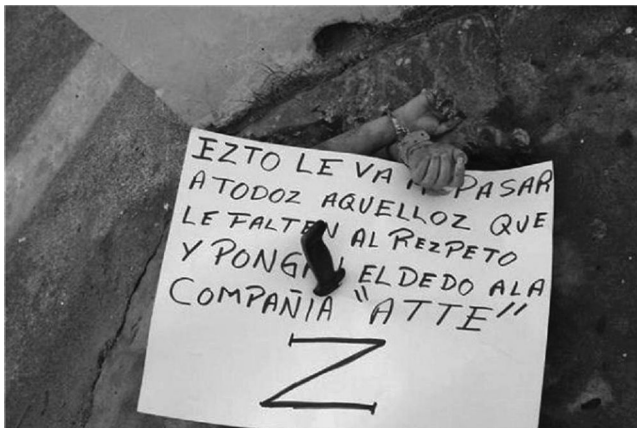 EZTO LE VA A PASAR
A TODOZ AQUELLOZ QUE
LE FALTEN AL REZPETO
Y PONGAN EL DEDO A LA
COMPAÑIA "ATTE"
Z